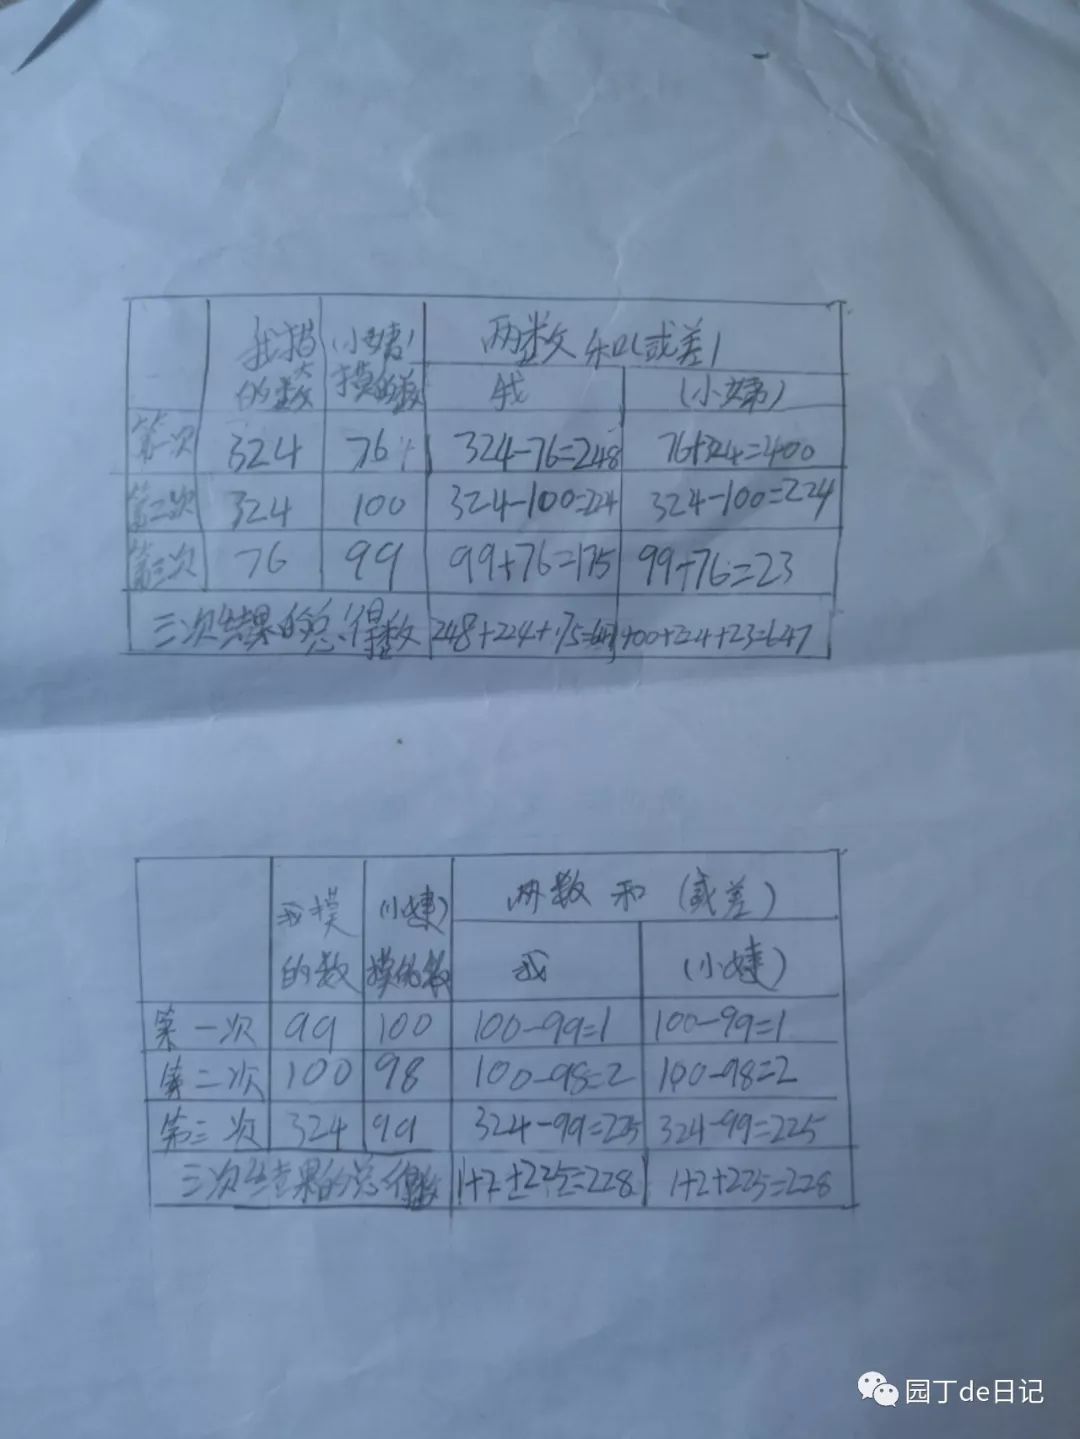 我摸 (小婕) 两数和(或差)
的数 摸的数 我 (小婕)
第一次 324 76 324-76=248 76+324=400
第二次 324 100 324-100=224 324-100=224
第三次 76 99 99+76=175 99-76=23
三次结果的总得数 248+224+175=647 400+224+23=647
我摸 (小婕) 两数和(或差)
的数 摸的数 我 (小婕)
第一次 99 100 100-99=1 100-99=1
第二次 100 98 100-98=2 100-98=2
第三次 324 99 324-99=225 324-99=225
三次结果的总得数 1+2+225=228 1+2+225=228
园丁de日记